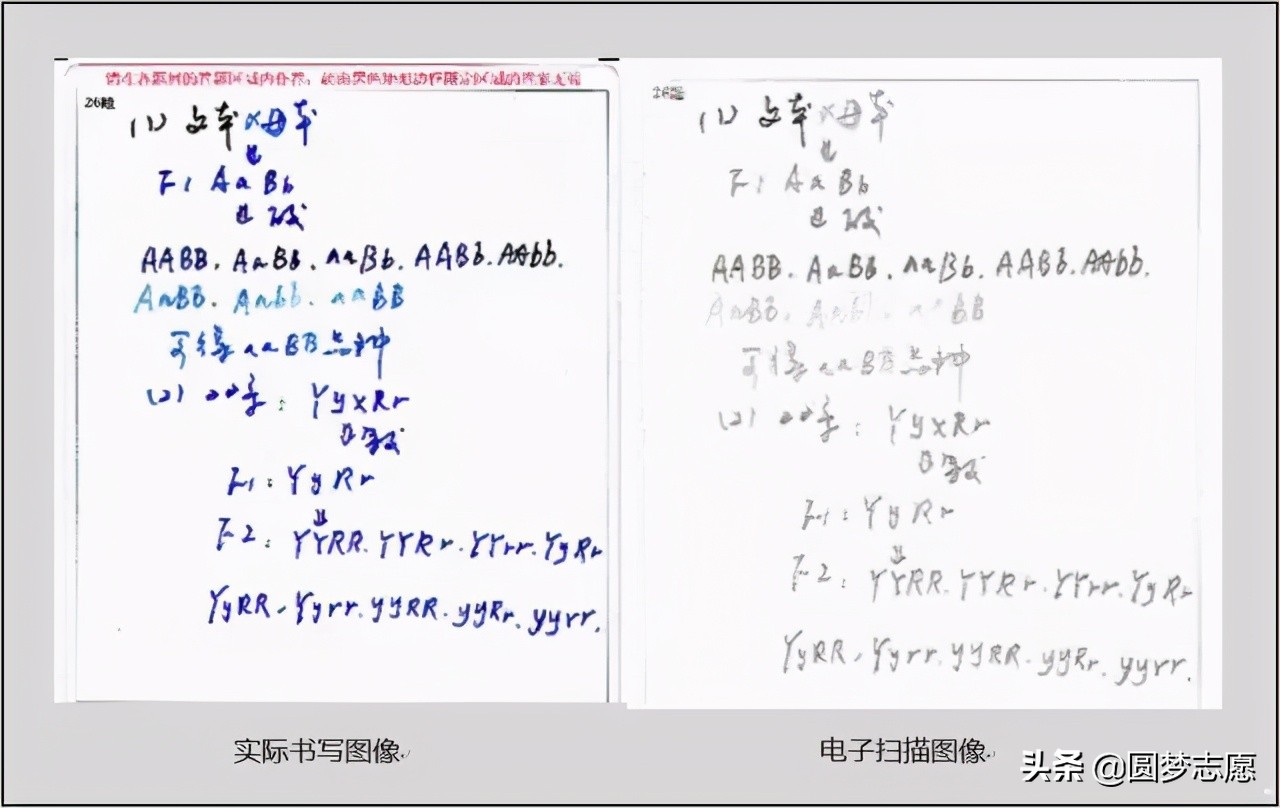 请在各题目的答题区域内作答，超出黑色矩形边框限定区域的答案无效
26题
(1) 父本×母本
↓
F1 AaBb
↓
AABB. AaBb. aaBb. AABb. AAbb.
AaBB. Aabb. aaBB
可得aaBB品种
(2) : YyxRr
↓
F1: YyRr
↓
F2: YYRR. YYRr. YYrr. YyRr
YyRR. Yyrr. yyRR. yyRr. yyrr.
实际书写图像
26题
(1) 父本×母本
↓
F1 AaBb
↓
AABB. AaBb. aaBb. AABb. AAbb.
AaBB. Aabb. aaBB
可得aaBB品种
(2) : YyxRr
↓
F1: YyRr
↓
F2: YYRR. YYRr. YYrr. YyRr
YyRR. Yyrr. yyRR. yyRr. yyrr.
电子扫描图像
头条 @圆梦志愿